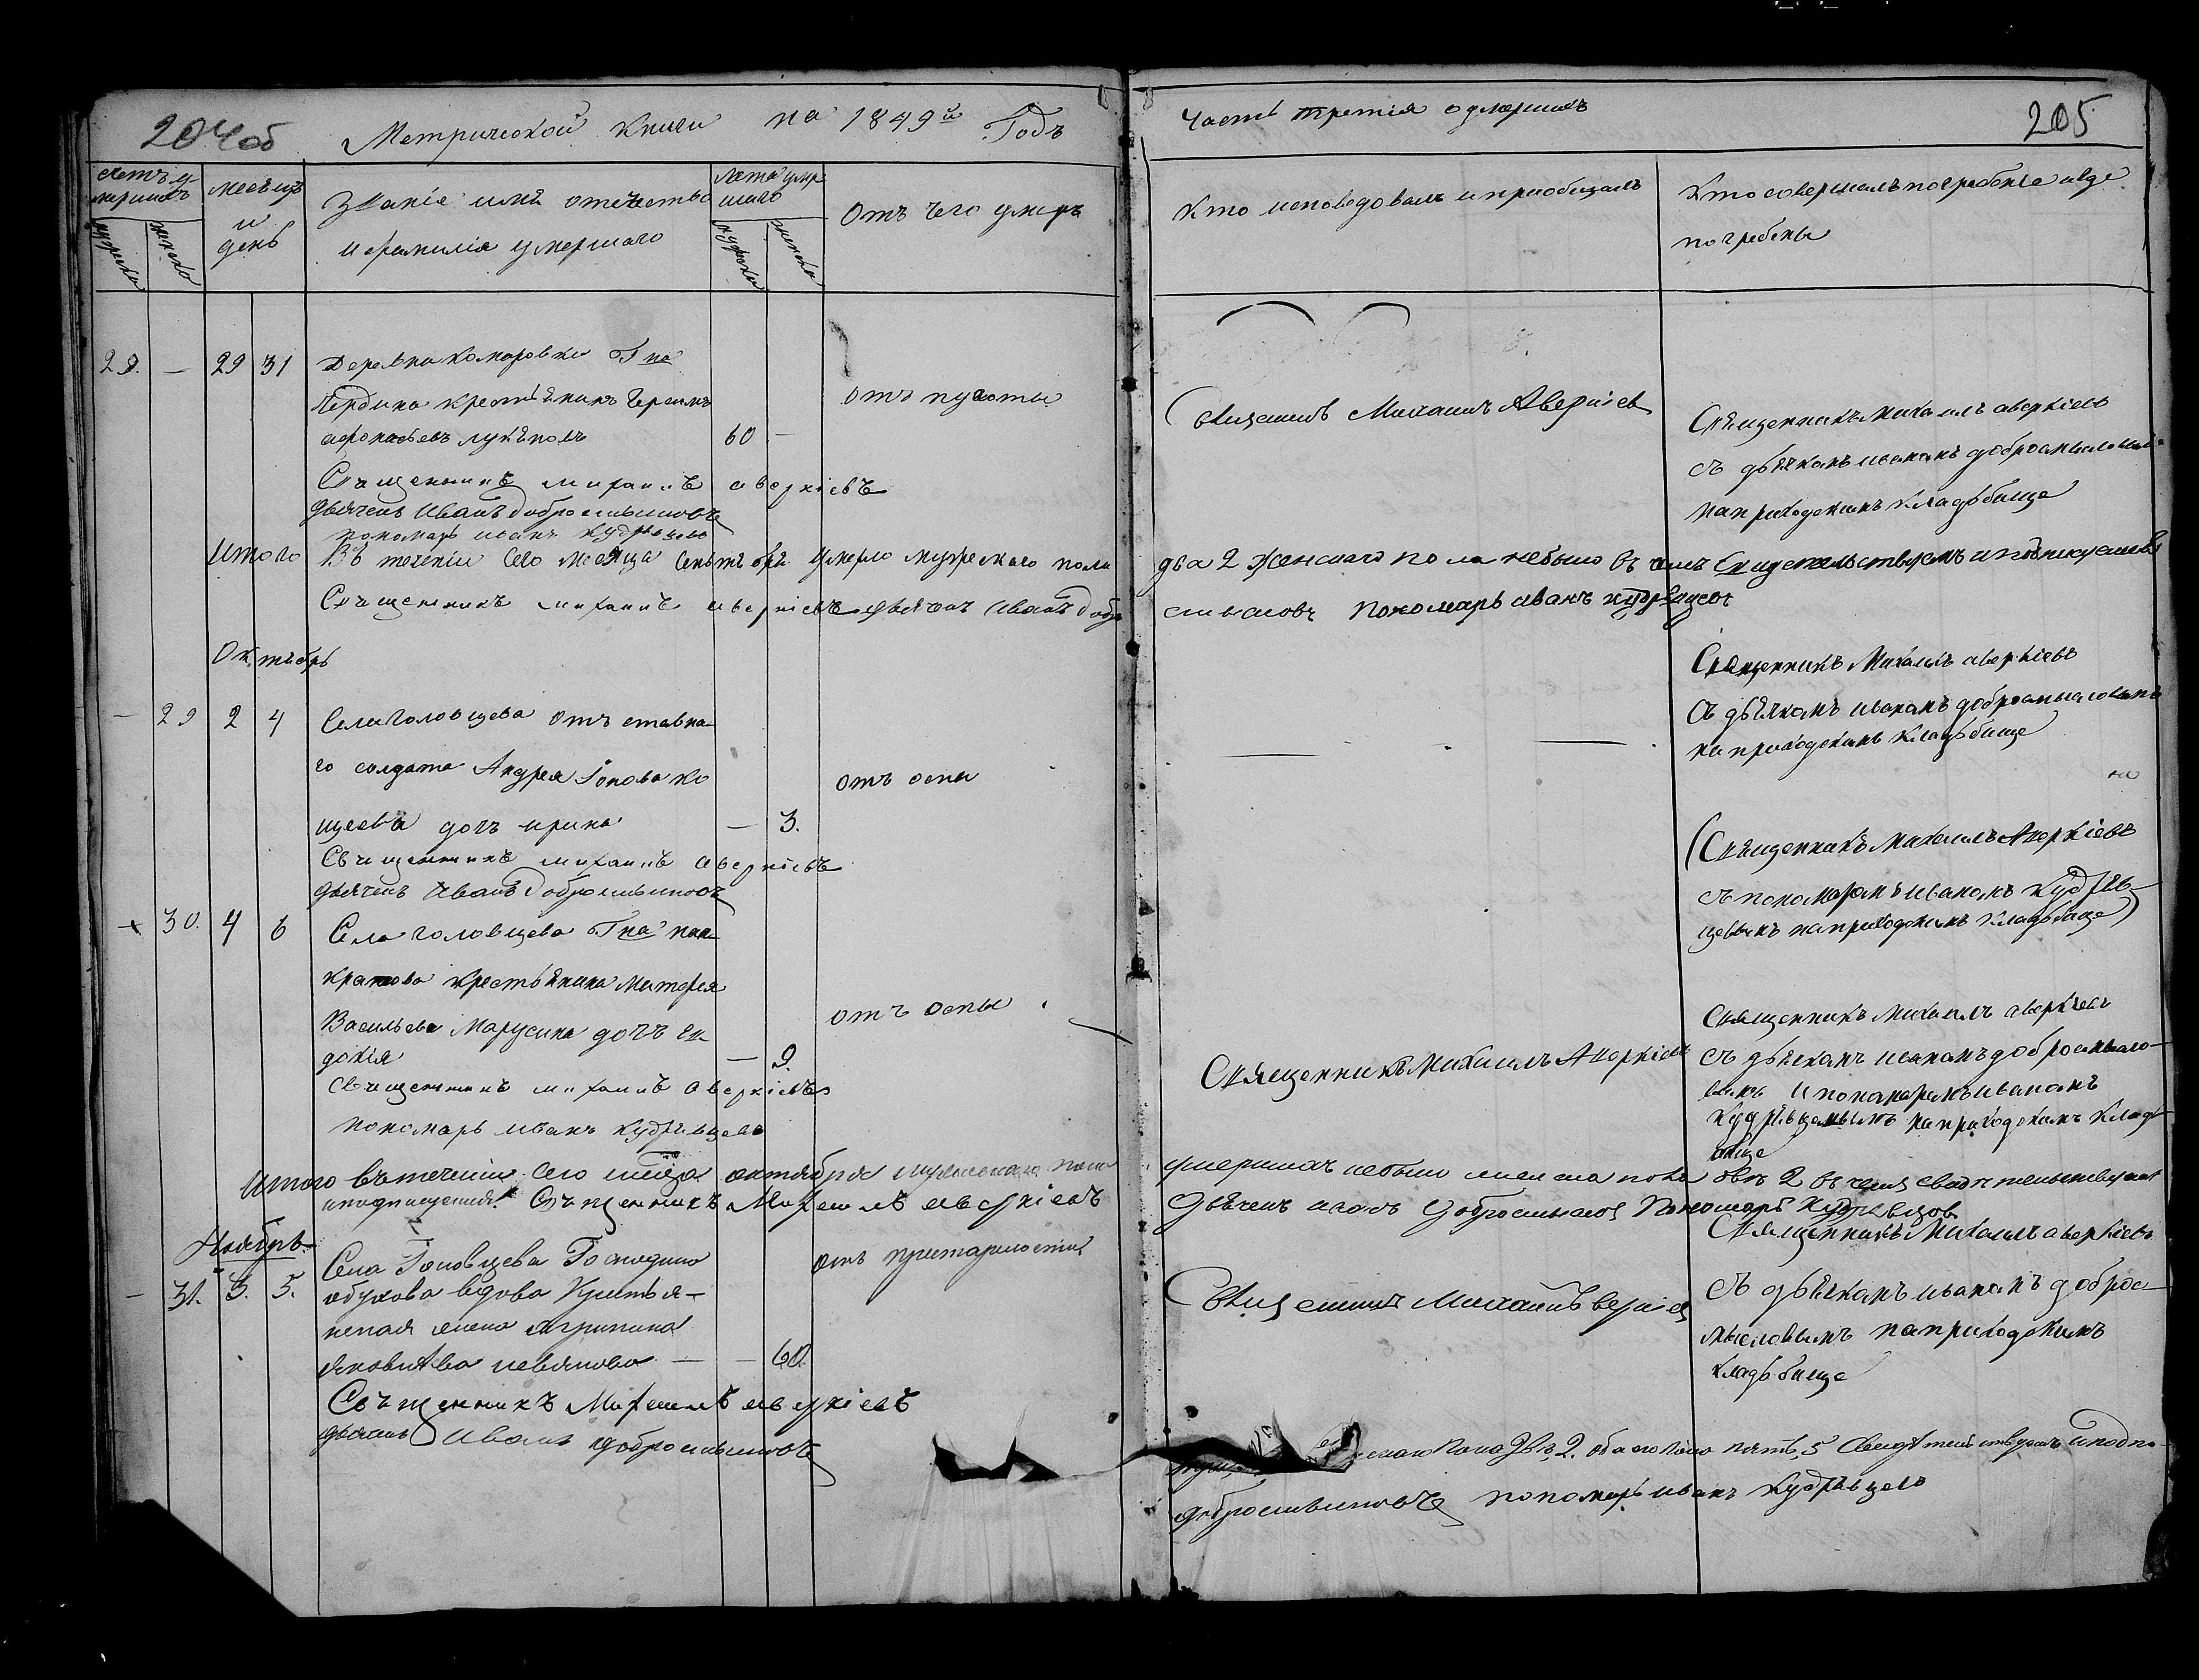 204об
Метрической книги на 1849й Годъ
Часть третія о умершихъ
205
Счетъ умершихъ
мужеска
женска
месецъ и день
Званіе имѣ отечество и фамиліа умершаго
Лета умершаго
мужеска
женска
Отъ чего умеръ
Кто исповедовалъ и приобщалъ
Кто совершалъ погребеніе и где погребены
29. — 29 31 Деревна комаровки Гна
крестьянинъ
60 —
Свищенникъ Михаилъ Аверкіев
Священникъ михаилъ аверкіевъ
съ дьячкомъ иваномъ добросмысловымъ
на приходскомъ кладьбище
Свъщенникъ михаилъ аверкіевъ
дьячекъ Иванъ Добросмысловъ
пономарь иванъ кудрѣвцевъ
Итого Въ теченіи сего месяца сентебря умерло мужескаго пола два 2 женскаго пола небыло въ чемъ свидетельствуемъ и подпи
Свъщенникъ михаилъ аверкіевъ дьячекъ Иванъ добро смысловъ пономарь иванъ кудрѣвцевъ
Октъбрь
— 29 2 4 Села головщева отъ ставна
го солдата Андрея
отъ оспы
дочь ирина — 3.
Священникъ Михаилъ аверкіевъ
съ дьячкомъ иваномъ добросмысловымъ
на приходскомъ кладьбище
Свъщенникъ михаилъ аверкіевъ
дьячекъ Иванъ Добросмысловъ
30. 4 6 Села головщева Гна пан
кратова крестьянина Матфея
Васильева Марусина дочь ев
докія — 2.
отъ оспы
Священникъ михаилъ Аверкіевъ
съ пономаремъ иваномъ кудрѣв
цевымъ на приходскомъ кладьбище
Свъщенникъ михаилъ аверкіевъ
пономарь иванъ кудрѣвцевъ
Священникъ Михаилъ Аверкіевъ
Священникъ михаилъ аверкіевъ
съ дьячкомъ иваномъ добросмысло
вымъ и пономаремъ иваномъ
кудрѣвцевымъ на приходскомъ кладь
бище
Итого въ теченіи сего октября мужескаго пола умершихъ небыло пола двѣ 2 въ чемъ
Свъщенникъ Михаилъ аверкіевъ Дьячекъ иванъ добросмысловъ Пономарь Кудрѣвцовъ
Ноябрь
— 31. 3. 5. Села Головщева Господина
обухова вдова Кристья-
ская жена агрипина
60.
отъ престарелости
Свищенникъ Михаилъ
Священникъ Михаилъ аверкіевъ
съ дьячкомъ иваномъ доброс
мысловымъ на приходскомъ
кладьбище
Свъщенникъ Михаилъ аверкіевъ
дьячекъ Иванъ добросмысловъ
пола 2. обаего пола пять, 5 свидѣтельствуемъ и подпи
добросмысловъ пономарь иванъ кудрѣвцевъ